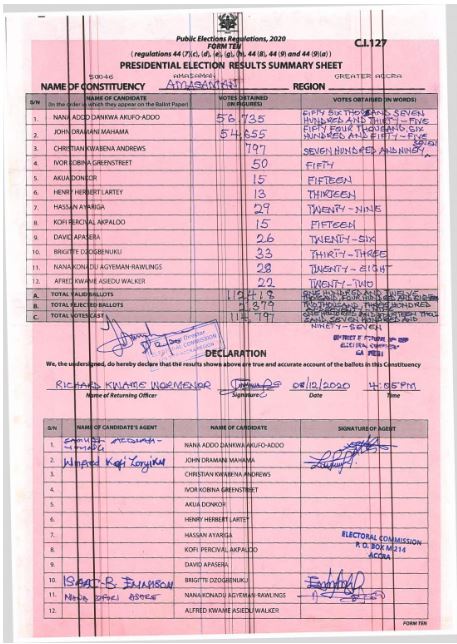 Public Elections Regulations, 2020
FORM TEN
C.I.127
( regulations 44 (7)(c), (d), (e), (g), (h), 44 (8), 44 (9) and 44 (9)(a) )
PRESIDENTIAL ELECTION RESULTS SUMMARY SHEET
S0046 AMASAMAN GREATER ACCRA
NAME OF CONSTITUENCY AMASAMAN REGION
S/N NAME OF CANDIDATE (In the order in which they appear on the Ballot Paper) VOTES OBTAINED (IN FIGURES) VOTES OBTAINED (IN WORDS)
1. NANA ADDO DANKWA AKUFO-ADDO 56,735 FIFTY SIX THOUSAND SEVEN HUNDRED AND THIRTY-FIVE
2. JOHN DRAMANI MAHAMA 54,655 FIFTY FOUR THOUSAND SIX HUNDRED AND FIFTY-FIVE
3. CHRISTIAN KWABENA ANDREWS 797 SEVEN HUNDRED AND NINETY SEVEN
4. IVOR KOBINA GREENSTREET 50 FIFTY
5. AKUA DONKOR 15 FIFTEEN
6. HENRY HERBERT LARTEY 13 THIRTEEN
7. HASSAN AYARIGA 29 TWENTY-NINE
8. KOFI PERCIVAL AKPALOO 15 FIFTEEN
9. DAVID APASERA 26 TWENTY-SIX
10. BRIGITTE DZOGBENUKU 33 THIRTY-THREE
11. NANA KONADU AGYEMAN-RAWLINGS 28 TWENTY-EIGHT
12. ALFRED KWAME ASIEDU WALKER 22 TWENTY-TWO
A. TOTAL VALID BALLOTS 112,418 ONE HUNDRED AND TWELVE THOUSAND FOUR HUNDRED AND EIGHTEEN
B. TOTAL REJECTED BALLOTS 2,379
C. TOTAL VOTES CAST 114,797
NINETY-SEVEN
DECLARATION
We, the undersigned, do hereby declare that the results shown above are true and accurate account of the ballots in this Constituency
RICHARD KWAME WORMENOR 08/12/2020 4:05PM
Name of Returning Officer Signature Date Time
S/N NAME OF CANDIDATE'S AGENT NAME OF CANDIDATE SIGNATURE OF AGENT
1. NANA ADDO DANKWA AKUFO-ADDO
2. JOHN DRAMANI MAHAMA
3. CHRISTIAN KWABENA ANDREWS
4. IVOR KOBINA GREENSTREET
5. AKUA DONKOR
6. HENRY HERBERT LARTEY
7. HASSAN AYARIGA
8. KOFI PERCIVAL AKPALOO
9. DAVID APASERA
10. BRIGITTE DZOGBENUKU
11. NANA KONADU AGYEMAN-RAWLINGS
12. ALFRED KWAME ASIEDU WALKER
ELECTORAL COMMISSION
P. O. BOX M 214
ACCRA
FORM TEN